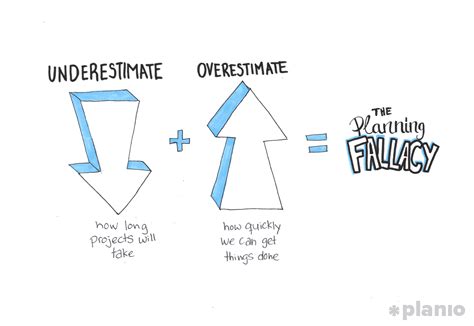 UNDERESTIMATE
how long
projects will
take
+
OVERESTIMATE
how quickly
we can get
things done
=
THE
Planning
FALLACY
*planio